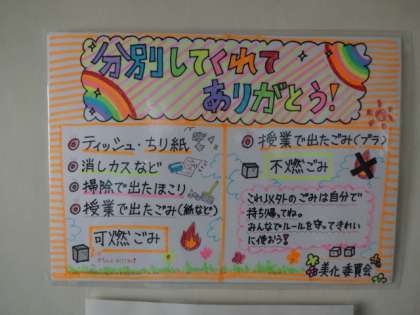 分別してくれて
ありがとう!
ティッシュ・ちり紙
消しカスなど
掃除で出たほこり
授業で出たごみ(紙など)
可燃ごみ
授業で出たごみ(プラ)
不燃ごみ
これ以外のごみは自分で
持ち帰ってね。
みんなでルールを守ってきれい
に使おう!
美化委員会